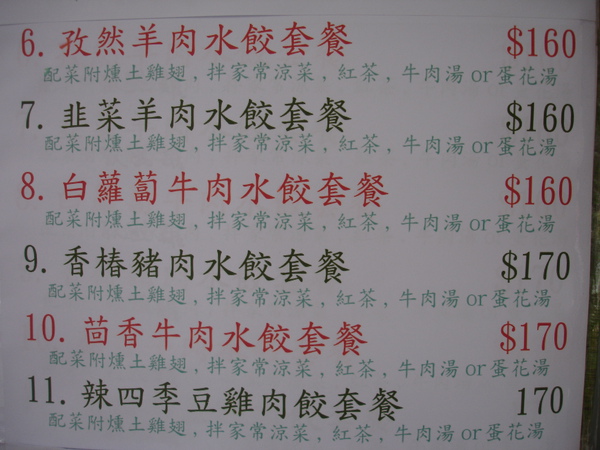 6. 孜然羊肉水餃套餐 $160
配菜附燻土雞翅,拌家常涼菜,紅茶,牛肉湯or蛋花湯
7. 韭菜羊肉水餃套餐 $160
配菜附燻土雞翅,拌家常涼菜,紅茶,牛肉湯or蛋花湯
8. 白蘿蔔牛肉水餃套餐 $160
配菜附燻土雞翅,拌家常涼菜,紅茶,牛肉湯or蛋花湯
9. 香椿豬肉水餃套餐 $170
配菜附燻土雞翅,拌家常涼菜,紅茶,牛肉湯or蛋花湯
10. 茴香牛肉水餃套餐 $170
配菜附燻土雞翅,拌家常涼菜,紅茶,牛肉湯or蛋花湯
11. 辣四季豆雞肉餃套餐 170
配菜附燻土雞翅,拌家常涼菜,紅茶,牛肉湯or蛋花湯